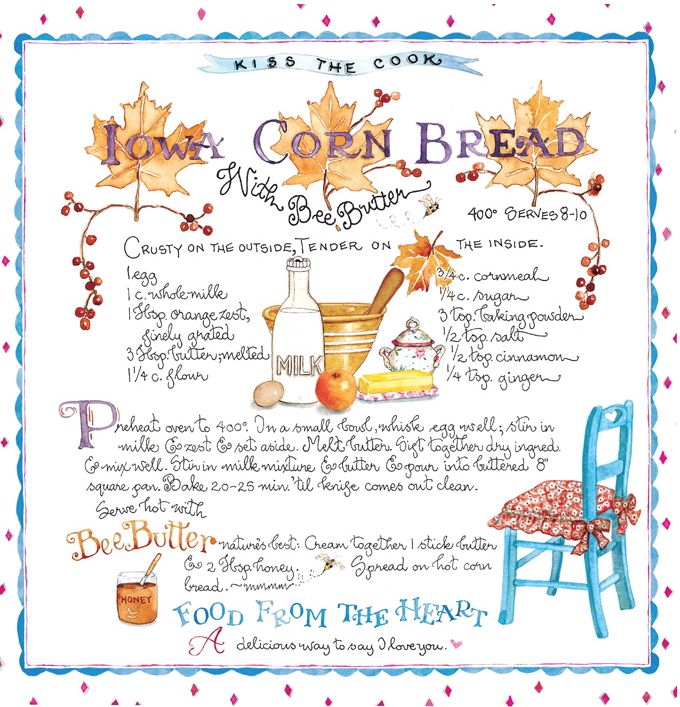 KISS THE COOK
IOWA CORN BREAD
With Bee Butter
400° SERVES 8-10
CRUSTY ON THE OUTSIDE, TENDER ON THE INSIDE.
1 egg
1 c. whole milk
1 Tbsp. orange zest,
finely grated
3 Tbsp. butter; melted
1 1/4 c. flour
3/4 c. cornmeal
1/4 c. sugar
3 tsp. baking powder
1/2 tsp. salt
1/2 tsp. cinnamon
1/4 tsp. ginger
MILK
Preheat oven to 400°. In a small bowl, whisk egg well; stir in
milk & zest & set aside. Melt butter. Sift together dry ingred.
& mix well. Stir in milk mixture & butter & pour into buttered 8"
square pan. Bake 20-25 min. 'til knife comes out clean.
Serve hot with
Bee Butter nature's best. Cream together 1 stick butter
& 2 Tbsp. honey. Spread on hot corn
bread. ~mmmm
HONEY
FOOD FROM THE HEART
A delicious way to say I love you.